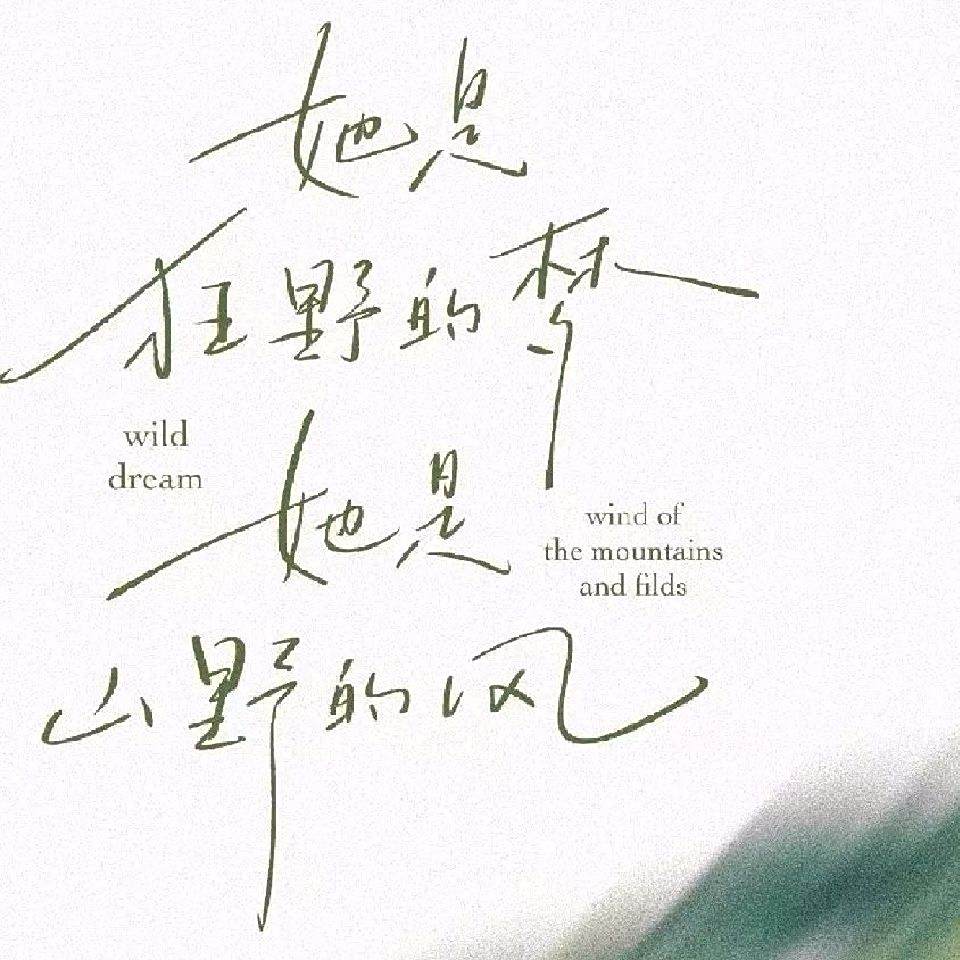 她是
狂野的梦
wild
dream
她是
wind of
the mountains
and filds
山野的风